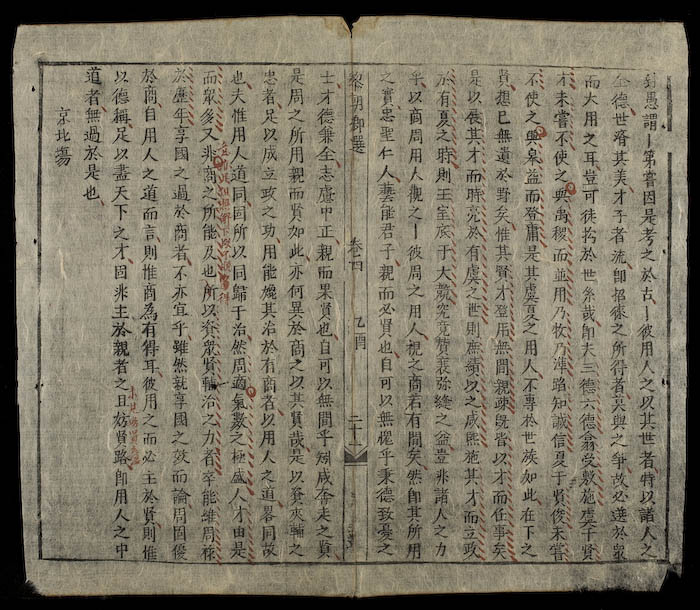 愚謂〡第嘗因是考之於古〡彼用人之以其世者特以諸人之
全德世濟其美才子者流即招徠之所得者莫與之爭故必選於衆
而大用之耳豈可徒拘於世系哉即夫三德六德翕受敷施虞于賢
才未嘗不使之與禹稷而並用乃牧乃準迪知誠信夏于賢俊未嘗
不使之與臯益而登庸是其虞夏之用人不專於世族如此在下之
賢想已無遺於野矣惟其賢才登用無間親疎旣皆以才而任事矣
是以展其才而時亮於有虞之世則庶績以之咸熙施其才而立政
於有夏之時則王室底于大競究竟贊襄弥縫之益豈非諸人之力
乎以商周用人觀之〡彼周之用人視之商若有間矣然即其所用
之賓忠聖仁人藝能君子親而必賢也自可以無愧乎秉德致憂之
黎朝御選 卷之四 乙酉 二十一
士才德兼全志慮中正親而果賢也自可以無間乎矧咸奔走之賢
是周之所用親而賢如此亦何異於商之以其賢哉是以奔奏輔之
忠者足以成立政之功用能媲其治於有商者以用人之道畧同故
也夫惟用人道同固所以同歸于治然周適氣數之極盛人才由是
而衆多又非商之所能及也所以資衆賢輔治之力者卒能維周祿
於歷年享國之過於商者不亦宜乎雖然就享國之效而論周固優
於商自用人之道而言則推商為有得耳彼用之而必主於賢則推
以德稱足以盡天下之才固非主於親者之且妨賢路即用人之中
道者無過於是也
京北場